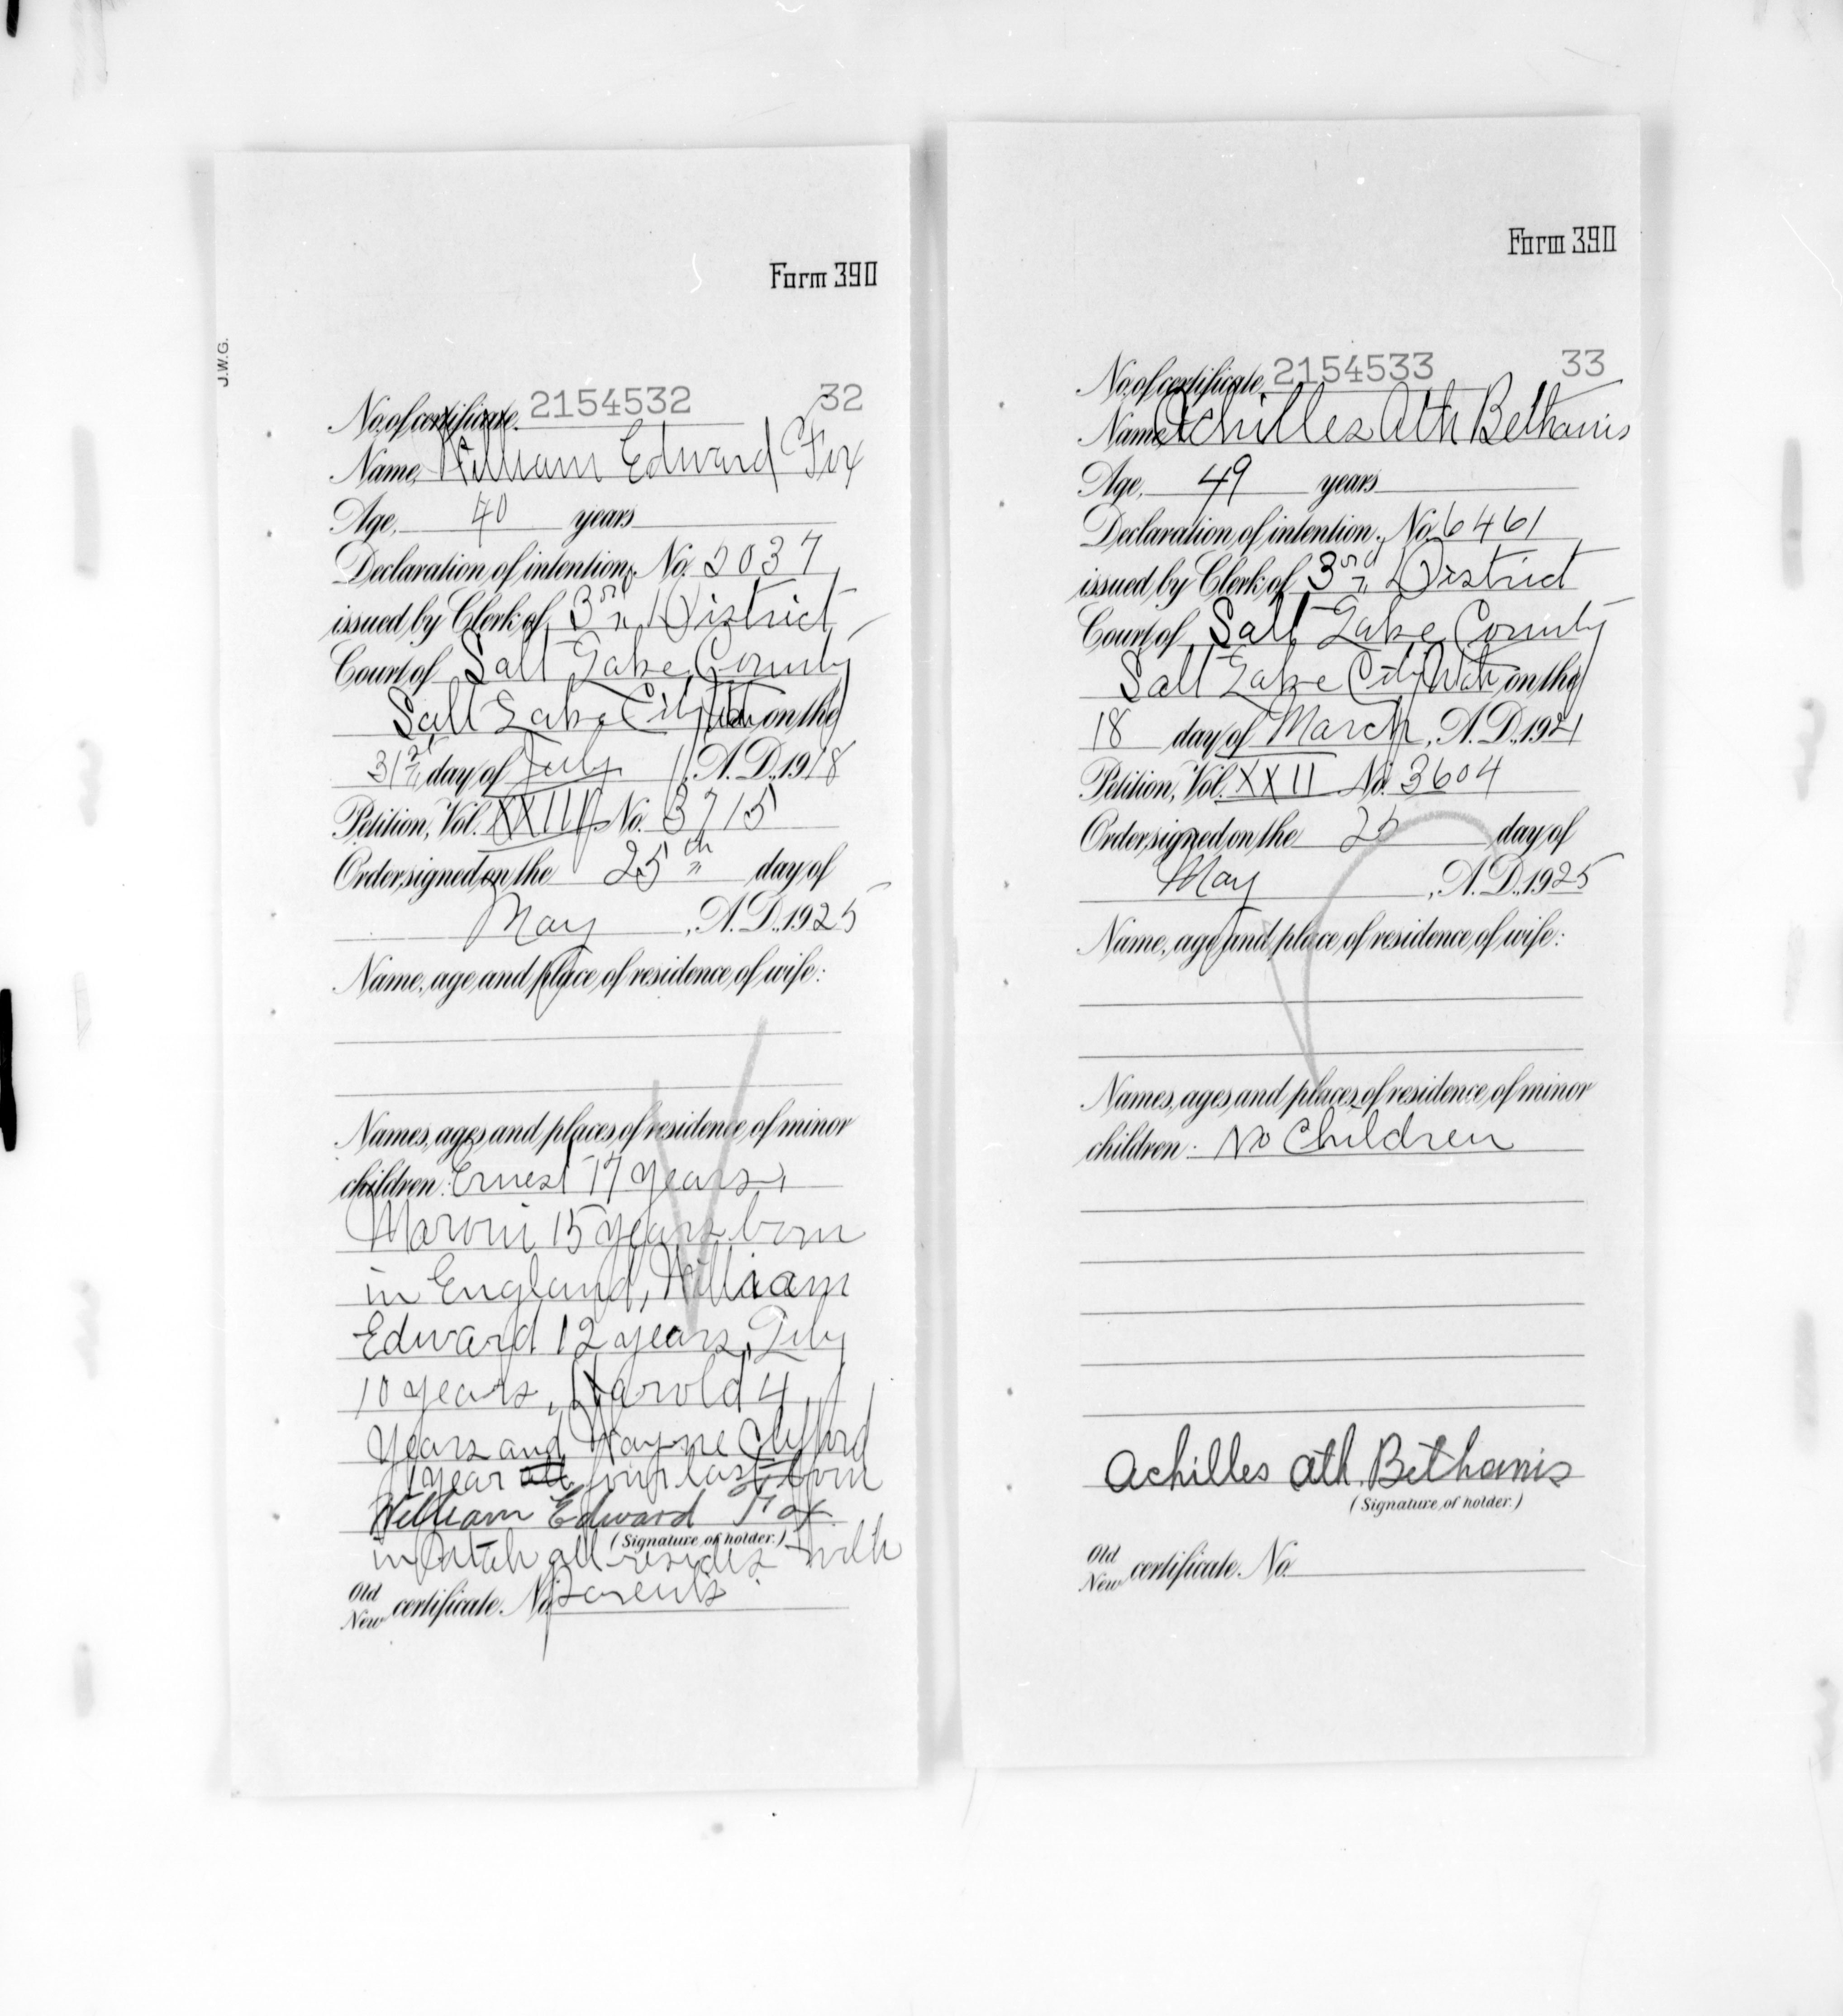 Form 390
J.W.G.
No. of certificate, 2154532 32
Name, William Edward Fox
Age, 40 years
Declaration of intention, No. 2037
issued by Clerk of 3rd District
Court of Salt Lake County
Salt Lake City Utah on the
31st day of July, A.D. 1918
Petition, Vol. XXIII No. 3715
Order signed on the 25th day of
May, A.D. 1925
Name, age and place of residence of wife:
Names, ages and places of residence of minor
children: Ernest 17 years,
Maroni 15 years born
in England, William
Edward 12 years, Lily
10 years, Harold 4
years and Wayne Clifford
1 year all four last born
William Edward Fox
(Signature of holder.)
in Utah all resides with
Old
New certificate No. parents.
Form 390
No. of certificate, 2154533 33
Name, Achilles Ath Bethanis
Age, 49 years
Declaration of intention, No. 6461
issued by Clerk of 3rd District
Court of Salt Lake County
Salt Lake City Utah on the
18 day of March, A.D. 1921
Petition, Vol. XXII No. 3604
Order signed on the 25 day of
May, A.D. 1925
Name, age and place of residence of wife:
Names, ages and places of residence of minor
children: No Children
Achilles Ath. Bethanis
(Signature of holder.)
Old
New certificate No.